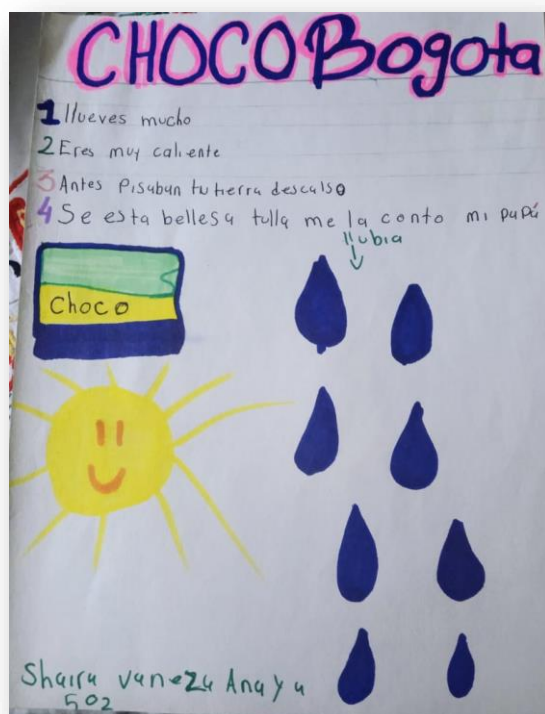 CHOCO Bogota
1 llueves mucho
2 Eres muy caliente
3 Antes Pisaban tu tierra descalso
4 Se esta bellesa tulla me la conto mi papá
llubia
Choco
Shaira vaneza Anaya
502